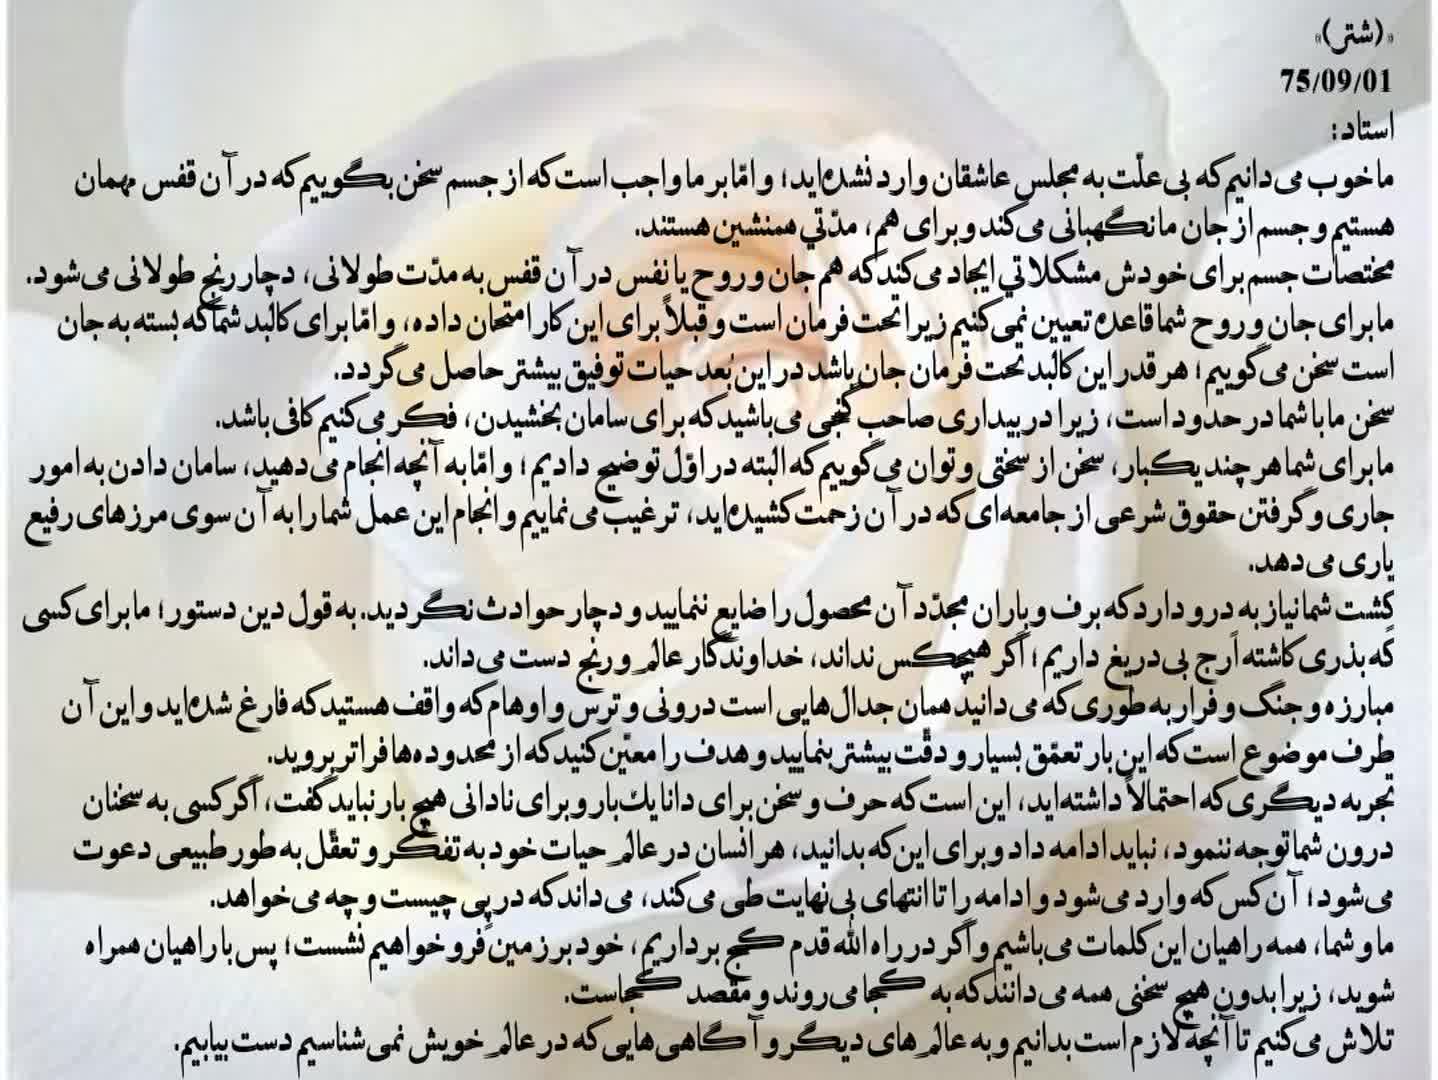 «(شتر)»
75/09/01
استاد:
ما خوب می دانیم که بی علّت به مجلس عاشقان وارد نشده‌اید؛ و امّا بر ما واجب است که از جسم سخن بگوییم که در آن قفس مهمان
هستیم و جسم از جان ما نگهبانی می‌کند و برای هم، مدّتي همنشین هستند.
مختصات جسم برای خودش مشکلاتي ایجاد می‌کند که هم جان و روح یا نفس در آن قفس به مدّت طولانی، دچار رنج طولانی می‌شود.
ما برای جان و روح شما قاعده تعیین نمی‌کنیم زیرا تحت فرمان است و قبلاً برای این کار امتحان داده، و امّا برای کالبد شما که بسته به جان
است سخن می‌گوییم؛ هر قدر این کالبد تحت فرمان جان باشد در این بُعد حیات توفیق بیشتر حاصل می‌گردد.
سخن ما با شما در حدود است، زیرا در بیداری صاحب گنجی می‌باشید که برای سامان بخشیدن، فکر می‌کنیم کافی باشد.
ما برای شما هر چند یکبار، سخن از سختی و توان می‌گوییم که البته در اوّل توضیح دادیم؛ و امّا به آنچه انجام می‌دهید، سامان دادن به امور
جاری و گرفتن حقوق شرعی از جامعه‌ای که در آن زحمت کشیده‌اید، ترغیب می‌نماییم و انجام این عمل شما را به آن سوی مرزهای رفیع
یاری می‌دهد.
کِشت شما نیاز به درو دارد که برف و باران مجدّد آن محصول را ضایع ننمایید و دچار حوادث نگردید. به قول دین دستور؛ ما برای کسی
که بذری کاشته اَرج بی‌دریغ داریم؛ اگر هیچکس نداند، خداوندگار عالم و رنج دست می‌داند.
مبارزه و جنگ و فرار به طوری که می‌دانید همان جدال‌هایی است درونی و ترس و اوهام که واقف هستید که فارغ شده‌اید و این آن
طرف موضوع است که این بار تعمّق بسیار و دقّت بیشتر بنمایید و هدف را معیّن کنید که از محدوده‌ها فراتر بروید.
تجربه دیگری که احتمالاً داشته‌اید، این است که حرف و سخن برای دانا یك بار و برای نادانی هیچ بار نباید گفت، اگر کسی به سخنان
درون شما توجه ننمود، نباید ادامه داد و برای این که بدانید، هر انسان در عالم حیات خود به تفکّر و تعقّل به طور طبیعی دعوت
می‌شود؛ آن کس که وارد می‌شود و ادامه را تا انتهای بی‌نهایت طی می‌کند، می‌داند که در پی چیست و چه می‌خواهد.
ما و شما، همه راهیان این کلمات می‌باشیم و اگر در راه الله قدم کج برداریم، خود بر زمین فرو خواهیم نشست؛ پس با راهیان همراه
شوید، زیرا بدون هیچ سخنی همه می‌دانند که به کجا می‌روند و مقصد کجاست.
تلاش می‌کنیم تا آنچه لازم است بدانیم و به عالم‌های دیگر و آگاهی‌هایی که در عالم خویش نمی‌شناسیم دست بیابیم.